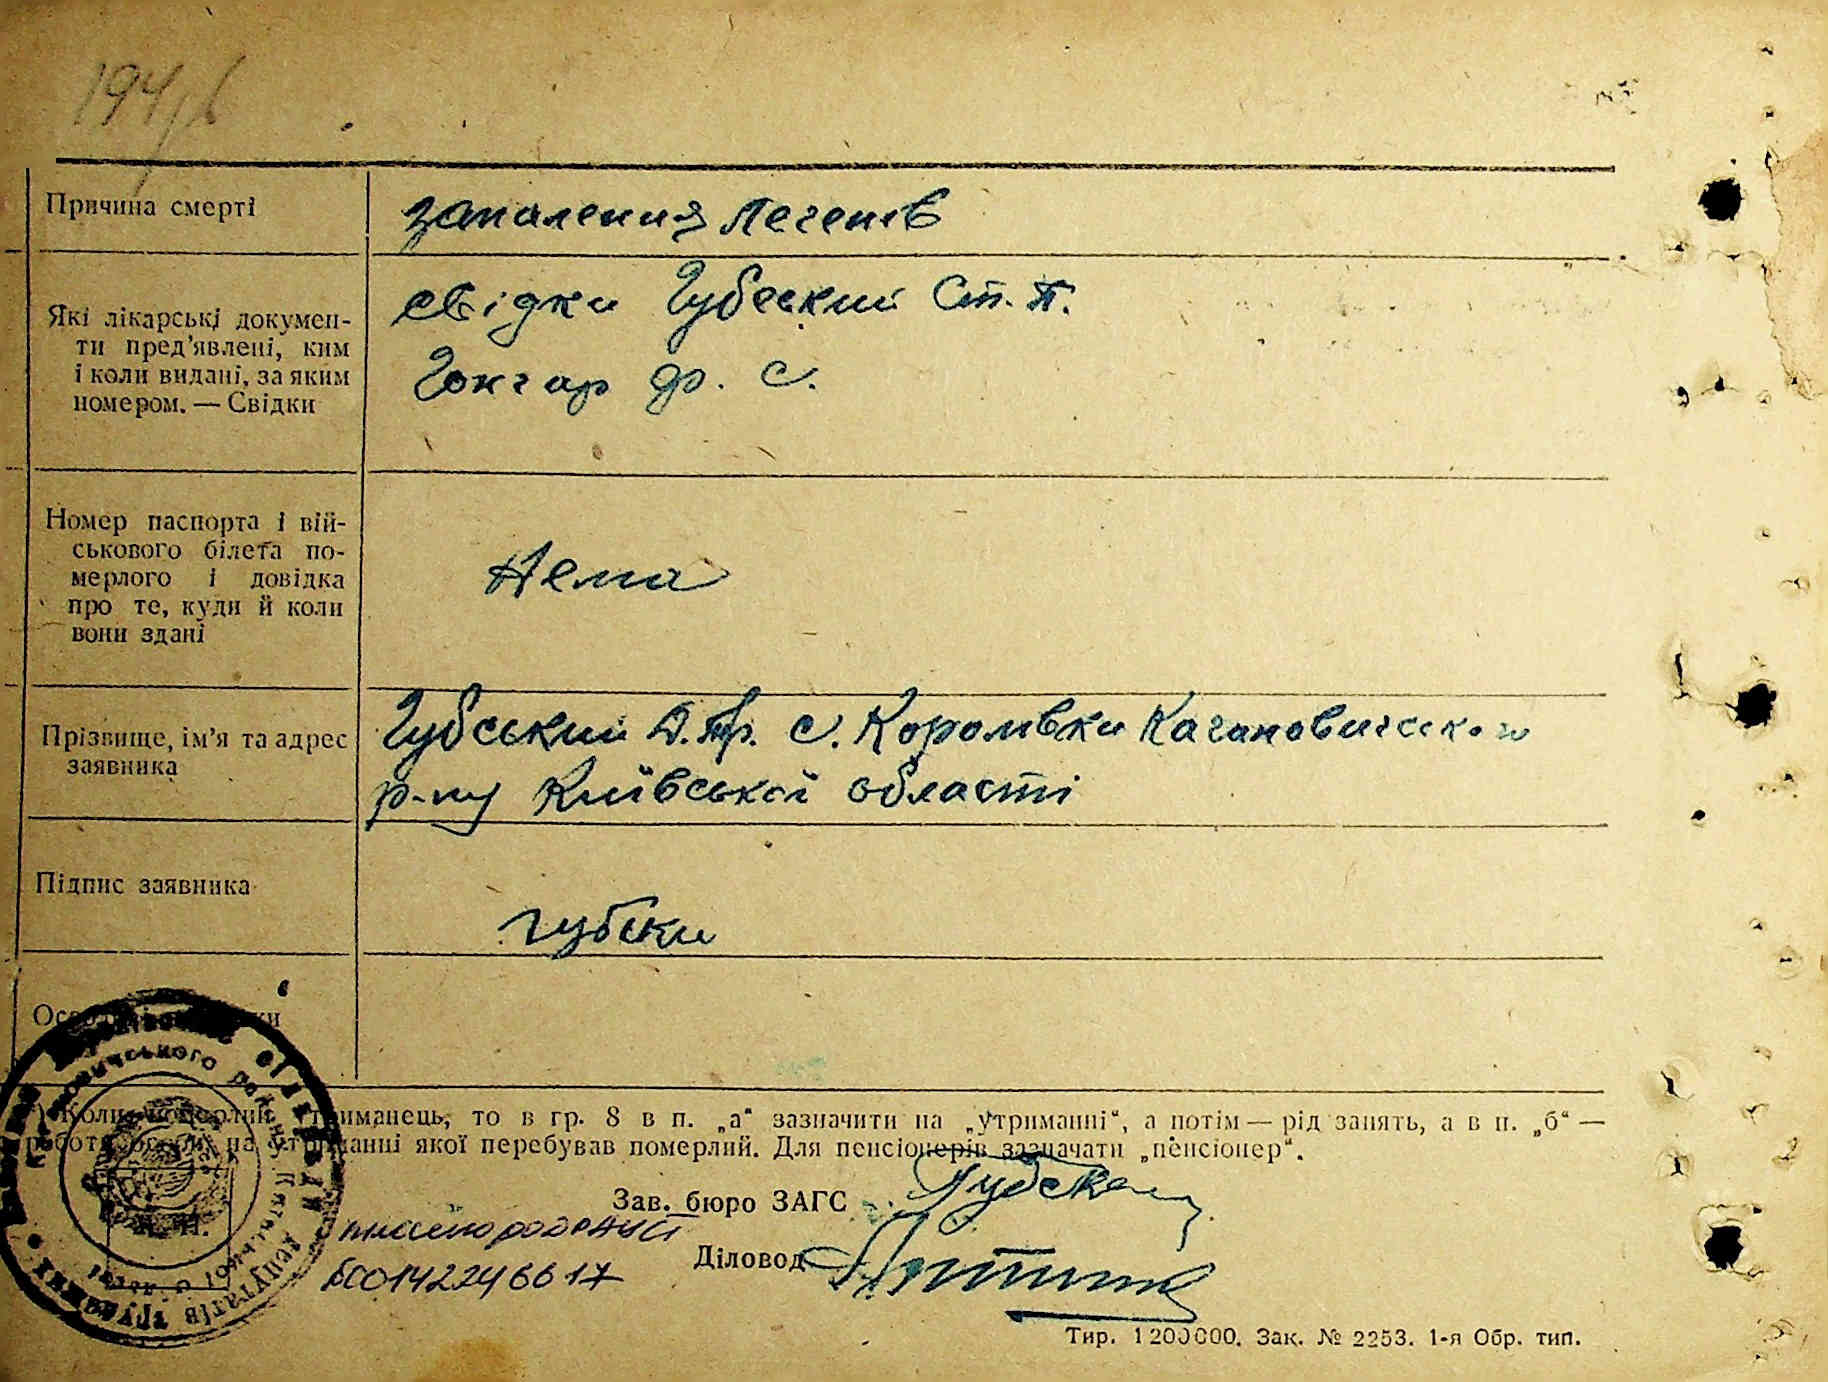 Причина смерті
запалення легенів
Які лікарські докумен-
ти пред'явлені, ким
і коли видані, за яким
номером. — Свідки
свідки Губський Ст. П.
Гончар Ф. С.
Номер паспорта і вій-
ськового білета по-
мерлого і довідка
про те, куди й коли
вони здані
Нема
Прізвище, ім'я та адрес
заявника
Губський Д. Гр. с. Королівки Кагановичськ
р-ну Київської області
Підпис заявника
губски
Коли померлий утриманець, то в гр. 8 в п. „а“ зазначити на „утриманні“, а потім — рід занять, а в п. „б“ —
робота особи, на утриманні якої перебував померлий. Для пенсіонерів зазначати „пенсіонер“.
Зав. бюро ЗАГС
Діловод
Тир. 1200000. Зак. № 2253. 1-я Обр. тип.